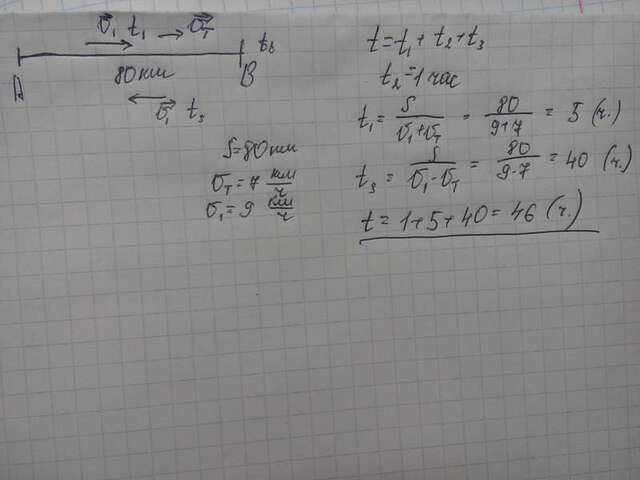 v₁ t₁ → vт
A 80 км B tв
v₁ t₃
S=80км
vт = 7 км/ч
v₁ = 9 км/ч
t = t₁ + t₂ + t₃
t₂ = 1 час
t₁ = S/(v₁+vт) = 80/(9+7) = 5 (ч.)
t₃ = S/(v₁-vт) = 80/(9-7) = 40 (ч.)
t = 1+5+40 = 46 (ч.)